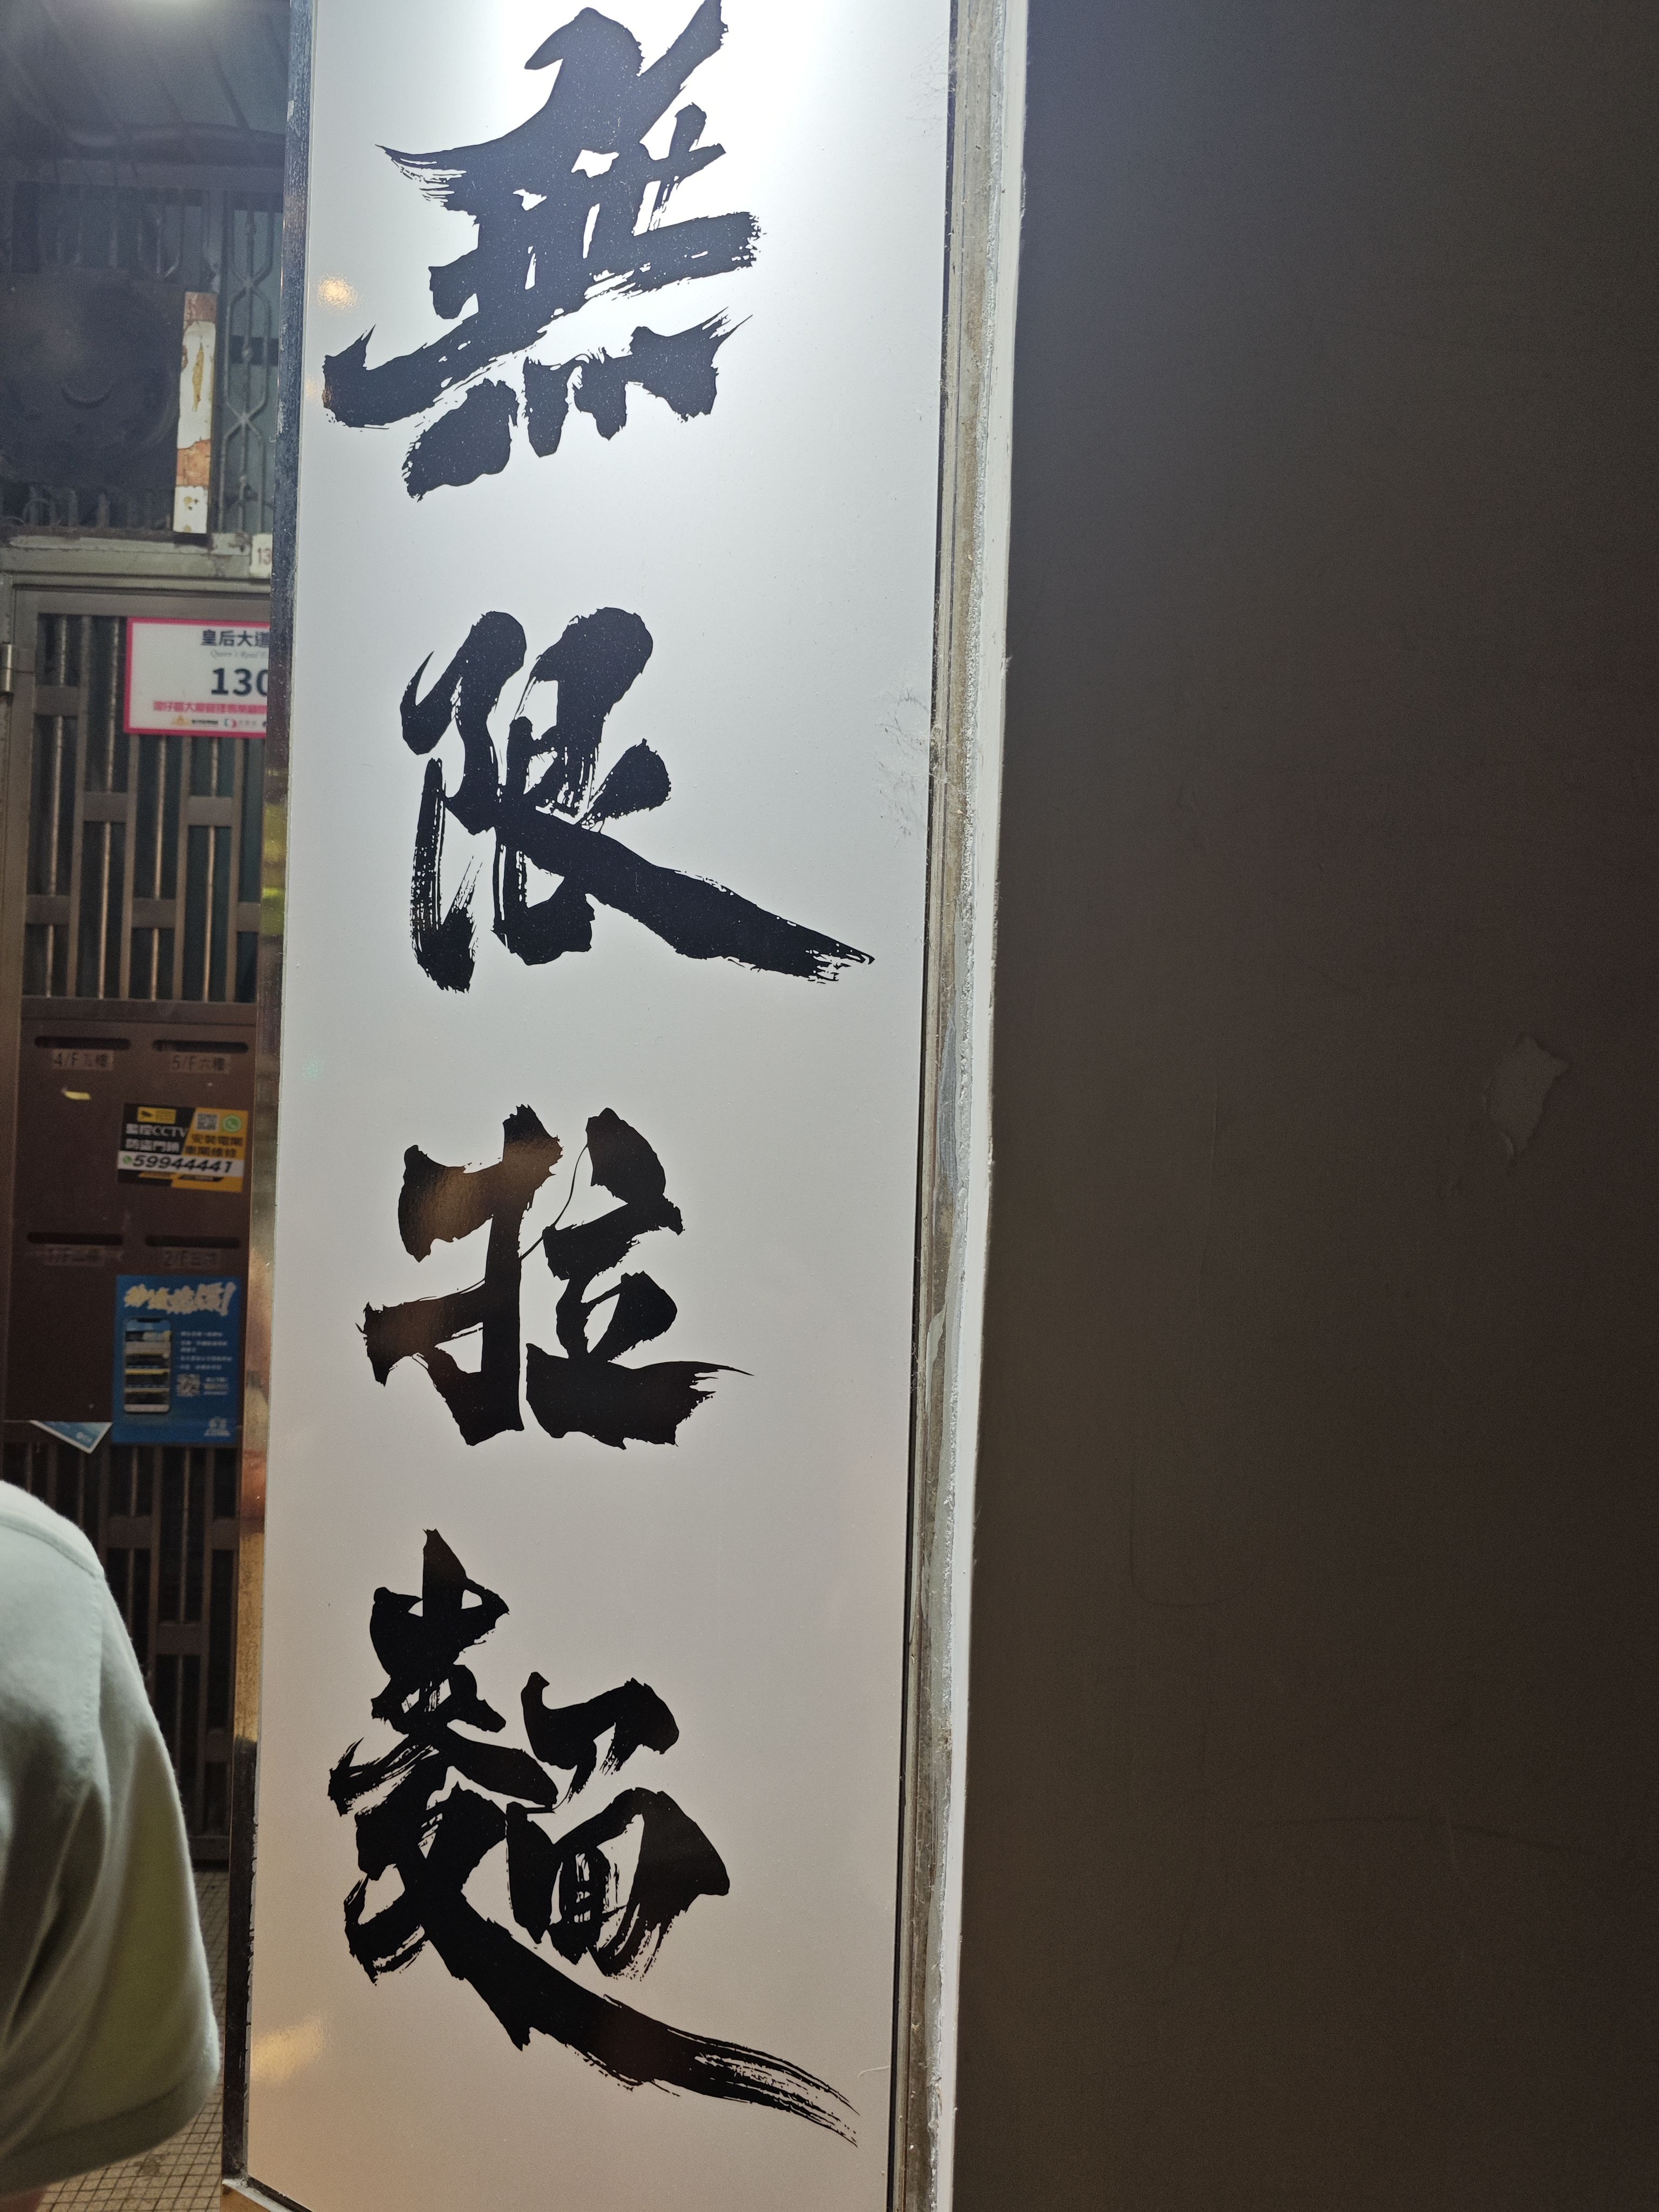 無限拉麵
皇后大道
Queen's Road
130
4/F 五樓
5/F 六樓
監控CCTV
防盜門鎖
安裝電閘
59944441
2/F 三樓